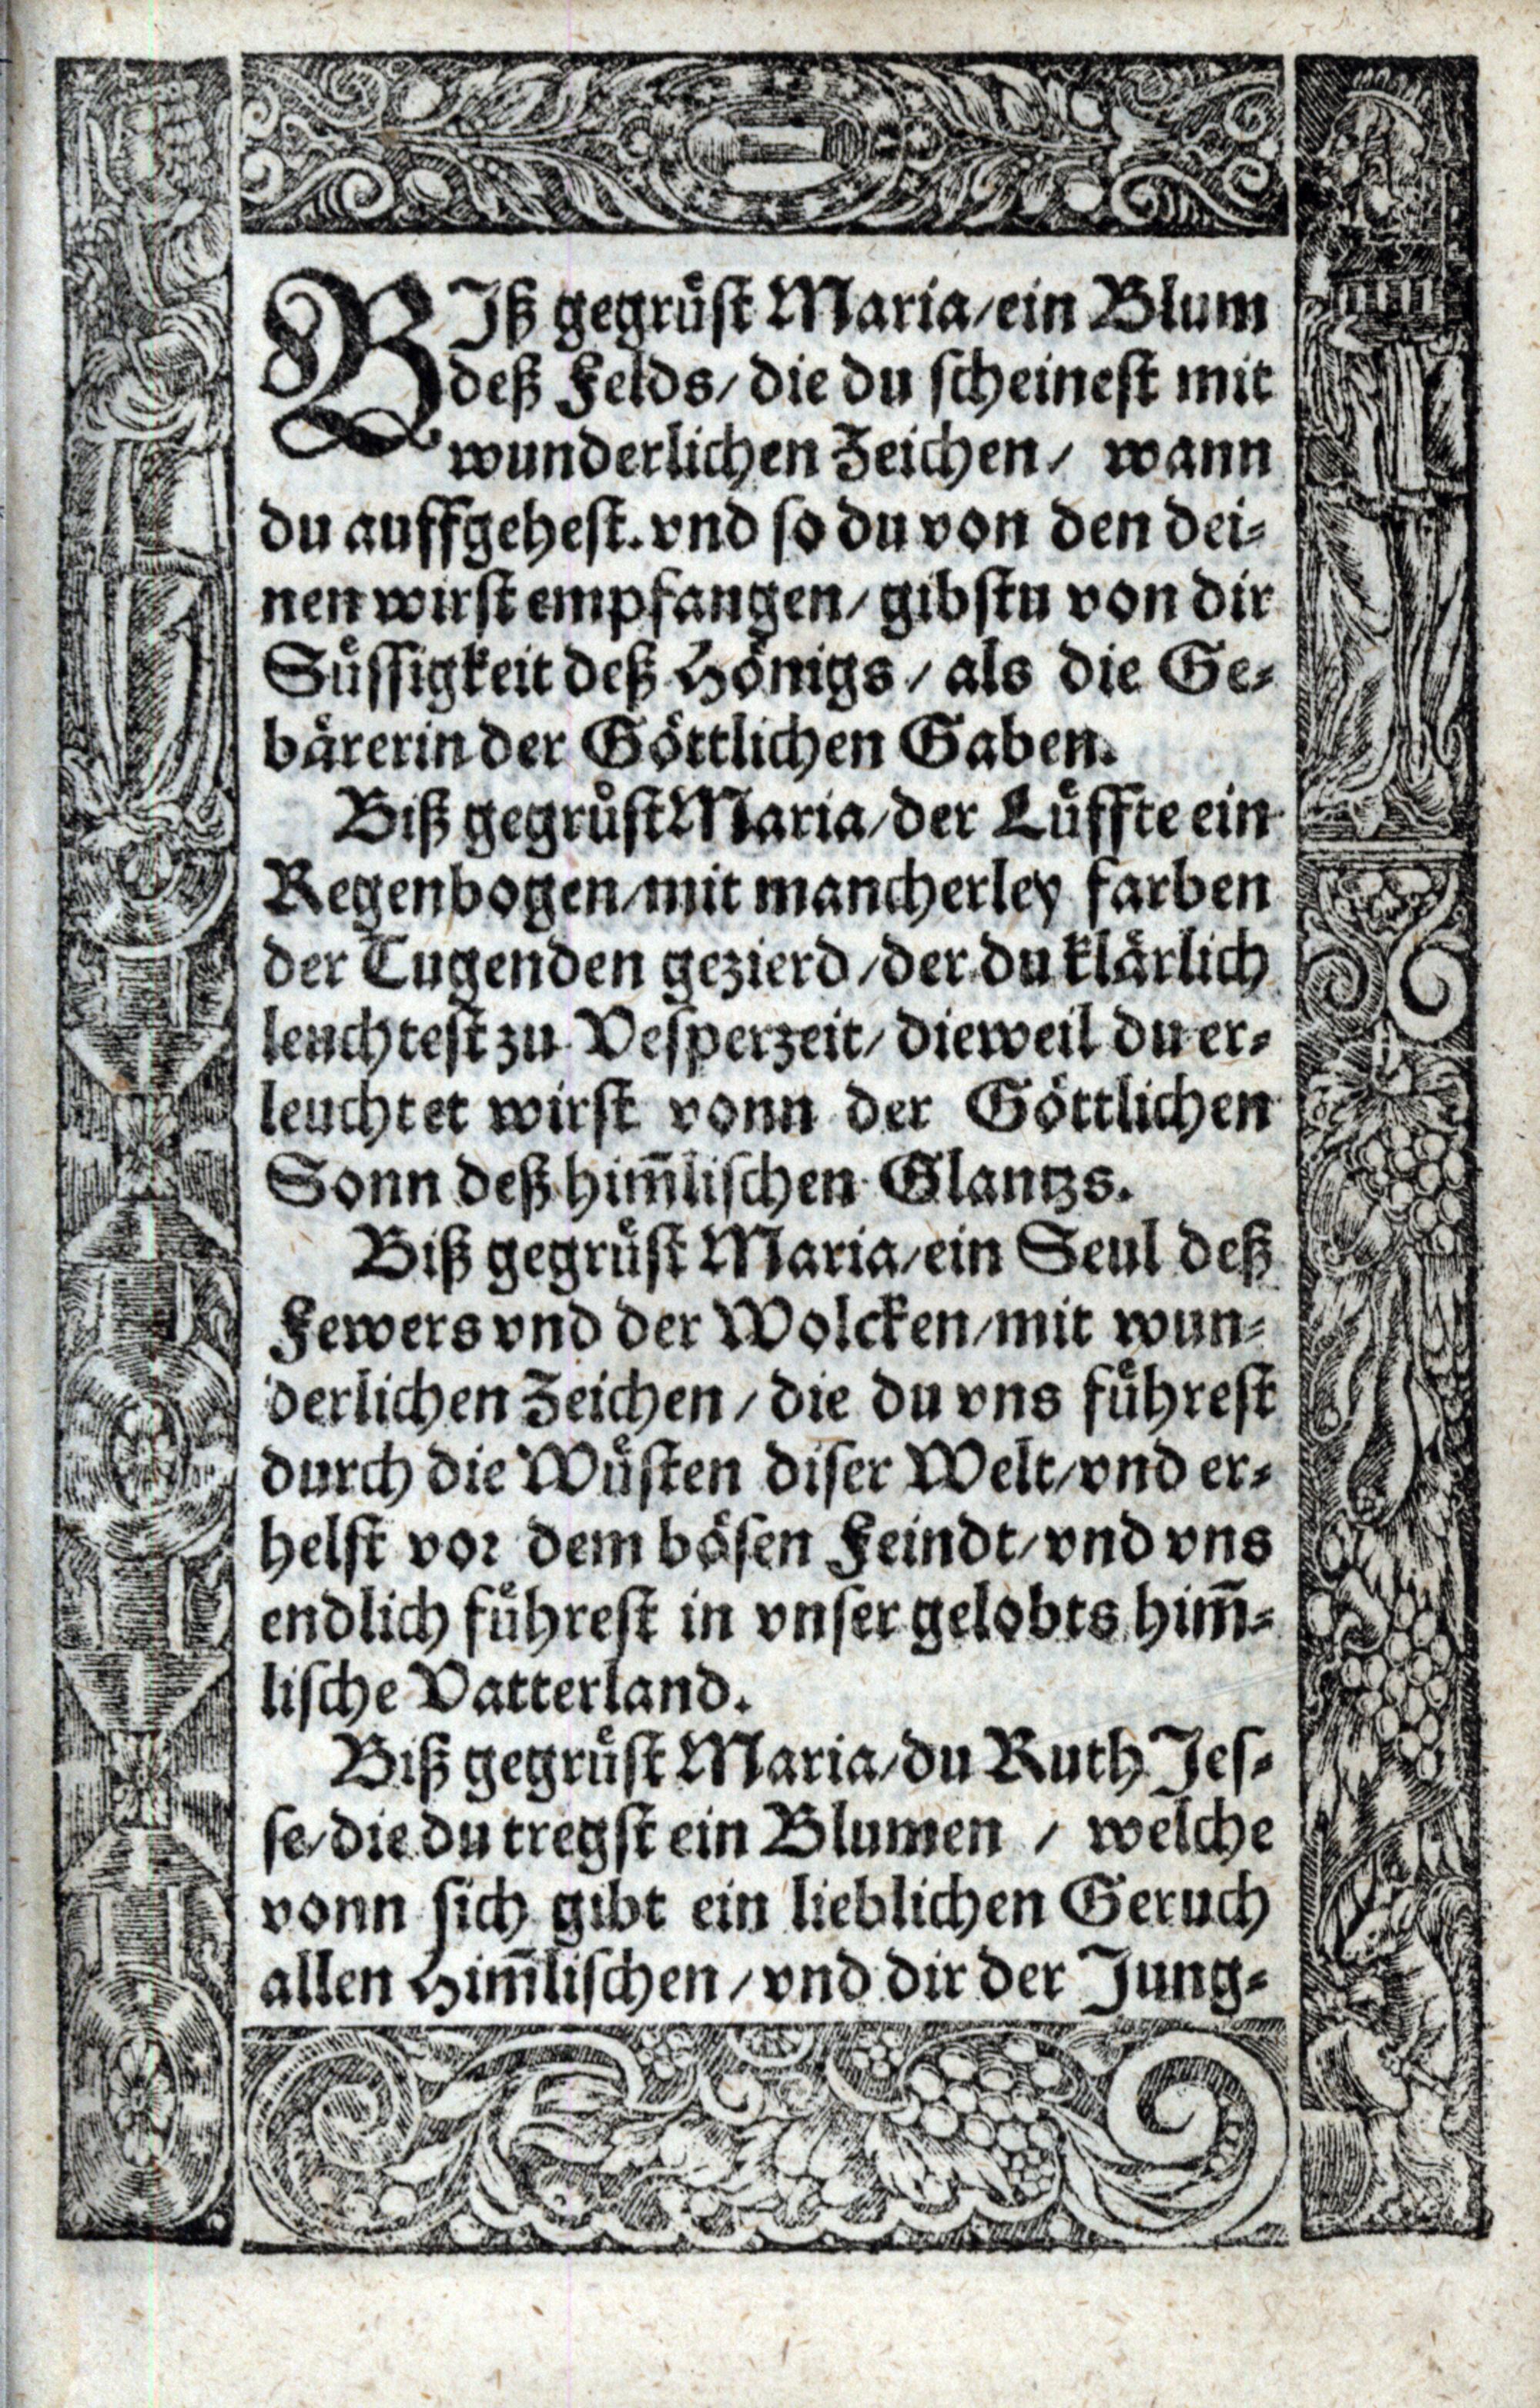 BIß gegrüſt Maria/ein Blum
deß Felds/die du ſcheineſt mit
wunderlichen Zeichen/ wann
du auffgeheſt. vnd ſo du von den dei⸗
nen wirſt empfangen/gibſtu von dir
Süſſigkeit deß Hönigs/als die Ge⸗
bärerin der Göttlichen Gaben.
Biß gegrüſt Maria/der Lüffte ein
Regenbogen/mit mancherley farben
der Tugenden gezierd/der du klärlich
leuchteſt zu Veſperzeit/dieweil du er⸗
leuchtet wirſt vonn der Göttlichen
Sonn deß him̃liſchen Glantzs.
Biß gegrüſt Maria/ein Seul deß
Fewers vnd der Wolcken/mit wun⸗
derlichen Zeichen/die du vns führeſt
durch die Wüſten diſer Welt/vnd er⸗
helſt vor dem böſen Feindt/vnd vns
endlich führeſt in vnſer gelobts him̃⸗
liſche Vatterland.
Biß gegrüſt Maria/du Ruth Jeſ⸗
ſe/die du tregſt ein Blumen / welche
vonn ſich gibt ein lieblichen Geruch
allen Him̃liſchen/vnd dir der Jung⸗